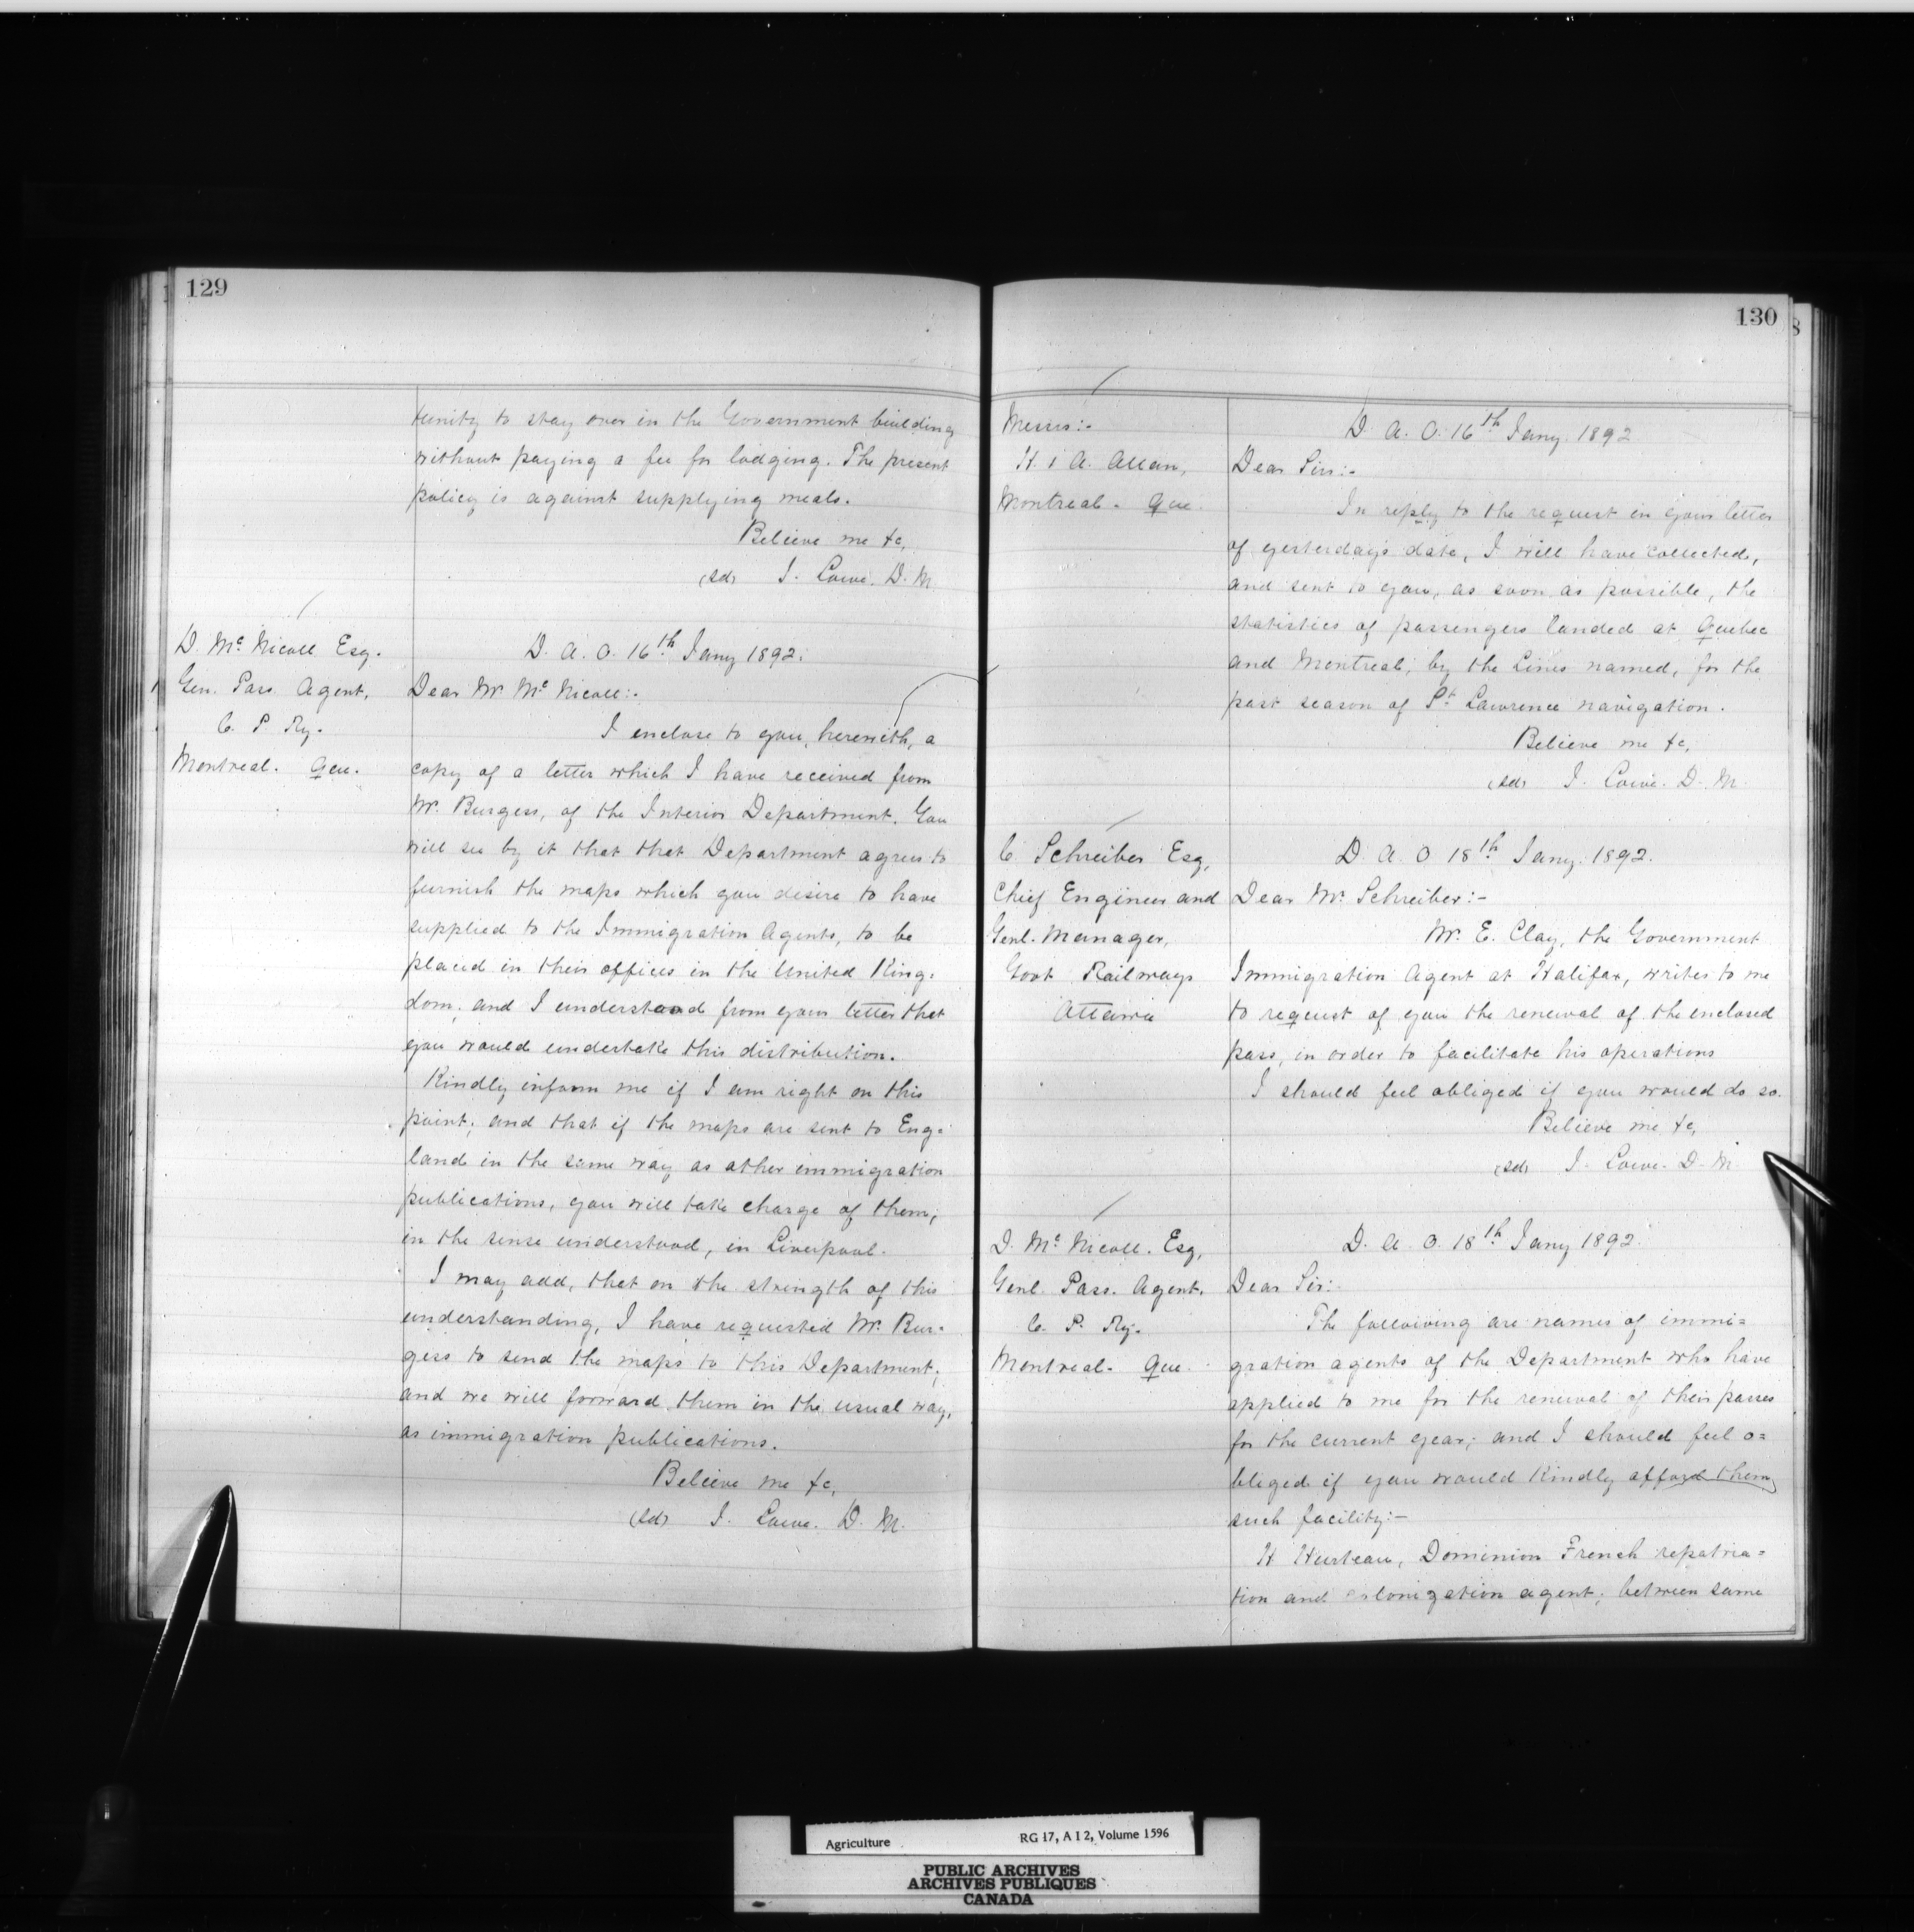 129
tunity to stay over in the Government building
without paying a fee for lodging. The present
policy is against supplying meals.
Believe me &c,
(sd) J. Lowe. D. M.
D. Mc Nicoll Esq.
Gen. Pass. Agent,
C. P. Ry.
Montreal. Que.
D. A. O. 16th Jany 1892.
Dear Mr Mc Nicoll:-
I enclose to you, herewith, a
copy of a letter which I have received from
Mr. Burgess, of the Interior Department. You
will see by it that that Department agrees to
furnish the maps which you desire to have
supplied to the Immigration Agents, to be
placed in their offices in the United King=
dom, and I understand from your letter that
you would undertake this distribution.
Kindly inform me if I am right on this
point; and that if the maps are sent to Eng=
land in the same way as other immigration
publications, you will take charge of them,
in the sense understood, in Liverpool.
I may add, that on the strength of this
understanding, I have requested Mr. Bur=
gess to send the maps to this Department,
and we will forward them in the usual way,
as immigration publications.
Believe me &c,
(sd) J. Lowe. D. M.
130
Messrs:-
H. & A. Allan,
Montreal - Que.
D. A. O. 16th Jany. 1892
Dear Sirs:-
In reply to the request in your letter
of yesterday's date, I will have collected,
and sent to you, as soon as possible, the
statistics of passengers landed at Quebec
and Montreal, by the Lines named, for the
past season of St. Lawrence navigation.
Believe me &c,
(sd) J. Lowe. D. M.
C. Schreiber Esq,
Chief Engineer and
Genl. Manager,
Govt Railways
Ottawa
D. A. O 18th Jany. 1892.
Dear Mr. Schreiber:-
Mr. E. Clay, the Government
Immigration Agent at Halifax, writes to me
to request of you the renewal of the enclosed
pass, in order to facilitate his operations
I should feel obliged if you would do so.
Believe me &c,
(sd) J. Lowe. D. M.
D. Mc Nicoll. Esq,
Genl. Pass. Agent,
C. P. Ry.
Montreal. Que.
D. A. O. 18th Jany 1892.
Dear Sir:-
The following are names of immi=
gration agents of the Department who have
applied to me for the renewal of their passes
for the current year; and I should feel o=
bliged if you would kindly afford them
such facility:-
H Hurteau, Dominion French repatria=
tion and colonization agent; between same
Agriculture RG 17, A I 2, Volume 1596
PUBLIC ARCHIVES
ARCHIVES PUBLIQUES
CANADA